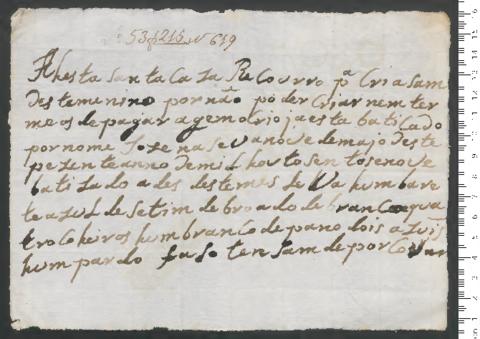 A hesta santa Caza Recourro pª Criasam
deste menino por não poder Criar nem ter
meos de pagar agem o Crio ja esta batizado
por nome Joze naseu a nove de majo deste
pezente anno de mil houtosentos e nove
batizado a des deste mes Leva hum bare
te azul de setim de broado de branco e qua
tro Coheiros hum branco de pano dois azuis
hum pardo faso tensam de porCovar